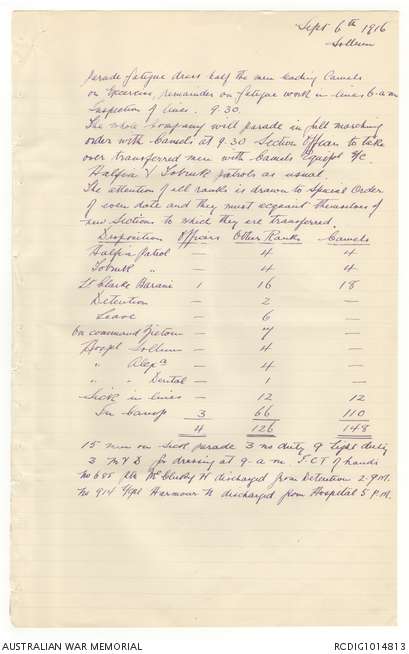 Sept 6th 1916
Sollum
Parade fatigue dress half the men leading Camels
on Exercise, remainder on fatigue work in lines 6-a-m
Inspection of lines. 9.30.
The whole Company will parade in full marching
order with Camels at 9.30 Section Officers to take
over transferred men with Camels Equipt &c.
Halfia & Tobruk patrols as usual.
The attention of all ranks is drawn to Special Order
of even date and they must acquaint themselves of
new Sections to which they are transferred.
Disposition Officers Other Ranks Camels
Halfia Patrol — 4 4
Tobruk " — 4 4
Lt Clarke Harani 1 16 18
Detention — 2 —
Leave — 6 —
On command Zietoun — 7 —
Hospl Sollum — 4 —
" Alexa — 4 —
" " Dental — 1 —
Sick in lines — 12 12
In Camp 3 66 110
4 126 148
15 men on Sick parade 3 no duty 9 light duty
3 M & D for dressing at 9-a-m. of hands
No 685 McClusky H discharged from Detention 2-P.M.
No 914 Harmour H discharged from Hospital 5 P.M.
AUSTRALIAN WAR MEMORIAL
RCDIG1014813